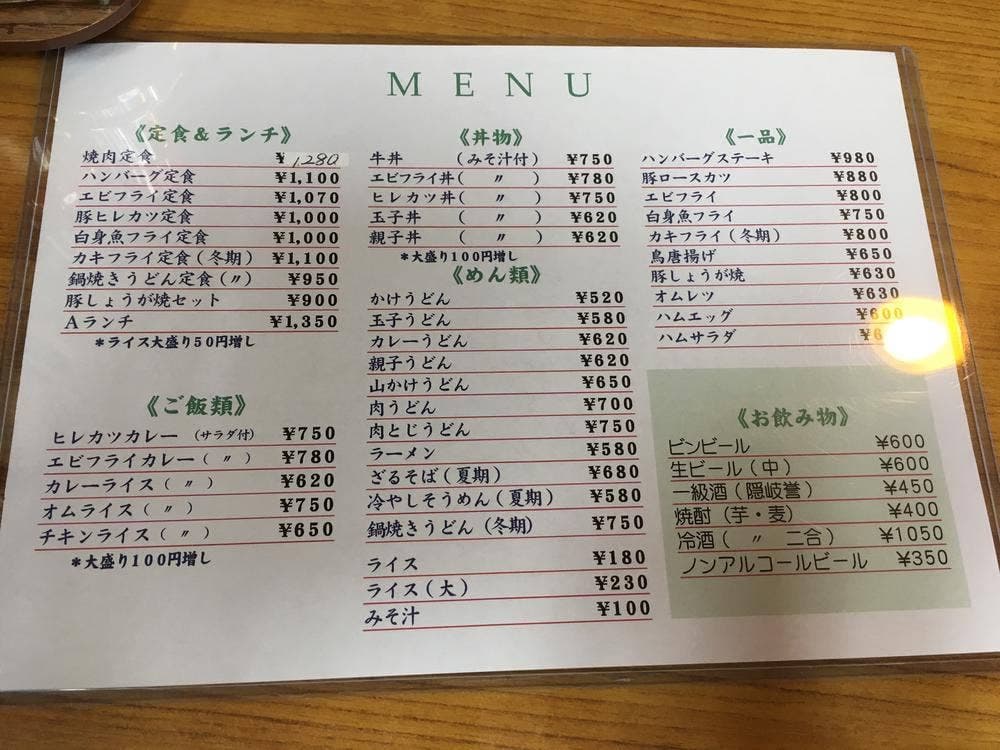 MENU
《定食&ランチ》
焼肉定食 ¥1,280
ハンバーグ定食 ¥1,100
エビフライ定食 ¥1,070
豚ヒレカツ定食 ¥1,000
白身魚フライ定食 ¥1,000
カキフライ定食(冬期) ¥1,100
鍋焼きうどん定食(〃) ¥950
豚しょうが焼セット ¥900
Aランチ ¥1,350
*ライス大盛り50円増し
《ご飯類》
ヒレカツカレー (サラダ付) ¥750
エビフライカレー(〃) ¥780
カレーライス(〃) ¥620
オムライス(〃) ¥750
チキンライス(〃) ¥650
*大盛り100円増し
《丼物》
牛丼 (みそ汁付) ¥750
エビフライ丼(〃) ¥780
ヒレカツ丼(〃) ¥750
玉子丼 (〃) ¥620
親子丼 (〃) ¥620
*大盛り100円増し
《めん類》
かけうどん ¥520
玉子うどん ¥580
カレーうどん ¥620
親子うどん ¥620
山かけうどん ¥650
肉うどん ¥700
肉とじうどん ¥750
ラーメン ¥580
ざるそば(夏期) ¥680
冷やしそうめん(夏期) ¥580
鍋焼きうどん(冬期) ¥750
ライス ¥180
ライス(大) ¥230
みそ汁 ¥100
《一品》
ハンバーグステーキ ¥980
豚ロースカツ ¥880
エビフライ ¥800
白身魚フライ ¥750
カキフライ(冬期) ¥800
鳥唐揚げ ¥650
豚しょうが焼 ¥630
オムレツ ¥630
ハムエッグ ¥600
ハムサラダ
《お飲み物》
ビンビール ¥600
生ビール(中) ¥600
一級酒(隠岐誉) ¥450
焼酎(芋・麦) ¥400
冷酒(〃 二合) ¥1050
ノンアルコールビール ¥350